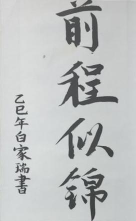 前程似锦
乙巳年白家瑞書